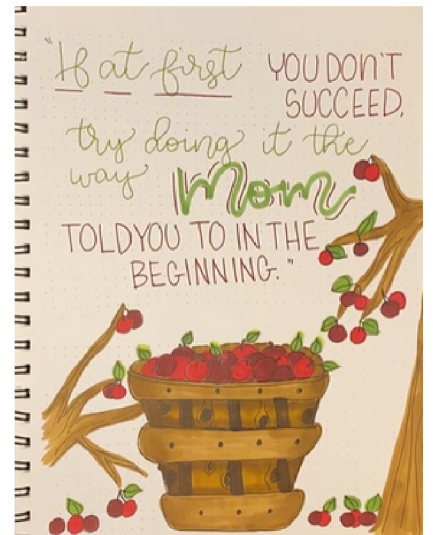 "If at first YOU DON'T
SUCCEED,
try doing it the
way Mom
TOLD YOU TO IN THE
BEGINNING."